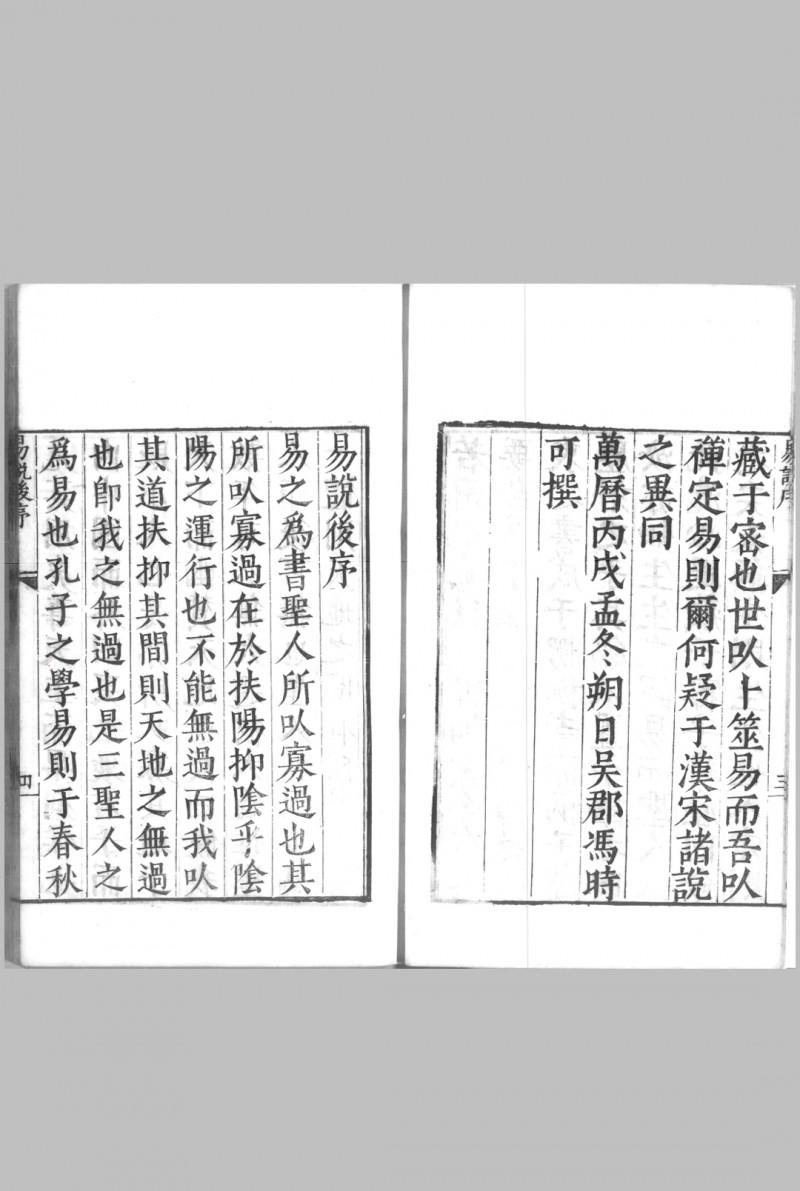 易說序
三
藏于宻也世㕥卜筮易而吾㕥
禪定易則爾何疑于漢宋諸說
之異同
萬曆丙戌孟冬朔日吳郡馮時
可撰
易說後序
易之爲書聖人所㕥寡過也其
所㕥寡過在於扶陽抑陰乎陰
陽之運行也不能無過而我㕥
其道扶抑其間則天地之無過
也卽我之無過也是三聖人之
爲易也孔子之學易則于春秋
易說後序
四